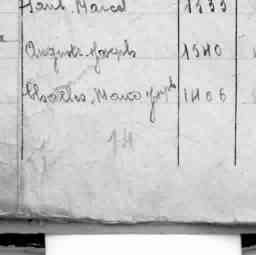 Paul. Marcel 1535
Auguste. Joseph 1540
Charles. Marie Joseph 1406
14